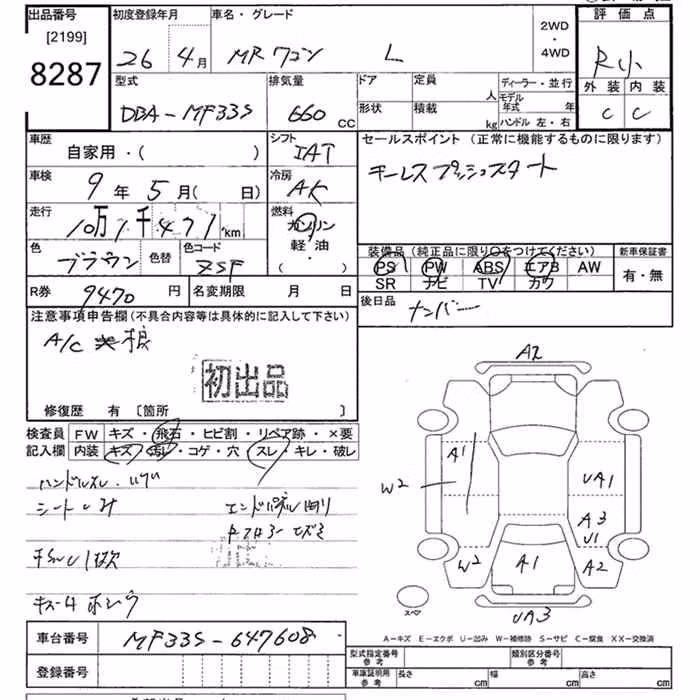 出品番号
[2199]
8287
初度登録年月
26 4月
車名・グレード
MRワゴン L
2WD
・
4WD
評価点
R小
外装 内装
C C
型式
DBA-MF33S
排気量
660 CC
ドア
定員
人
形状
積載
kg
ディーラー・並行
モデル年式 年
ハンドル 左・右
車歴
自家用・( )
シフト
IAT
セールスポイント (正常に機能するものに限ります)
キーレス プッシュスタート
車検
9年5月( 日)
冷房
走行
10万 千471km
燃料
ガソリン
軽・油
( )
色
ブラウン
色替
色コード
ZSF
装備品 (純正品に限り○をつけてください)
PS PW ABS エアB AW
SR ナビ TV カワ
新車保証書
有・無
R券 9470円
名変期限 月 日
後日品
ナンバー
注意事項申告欄 (不具合内容等は具体的に記入して下さい)
初出品
修復歴 有 [箇所 ]
検査員
記入欄
FW キズ・飛石・ヒビ割・リペア跡・×要
内装 キズ・汚れ・コゲ・穴・スレ・キレ・破レ
シート
エンドパネル
A2
A1
W2
UA1
A3
U1
W2
A1
A2
UA3
スペア
A－キズ E－エクボ U－凹み W－補修跡 S－サビ C－腐食 XX－交換済
車台番号 MF33S-647608
登録番号
型式指定番号 参考
類別区分番号 参考
車庫証明用 参考 長さ cm 幅 cm 高さ cm